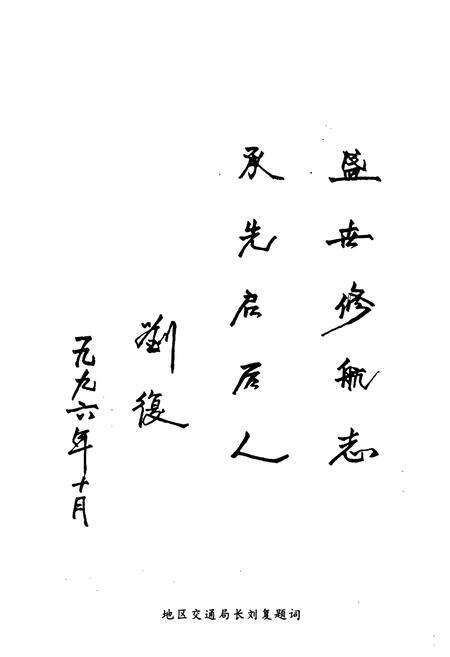 盛世修航志
承先启后人
劉復
一九九六年十月
地区交通局长刘复题词